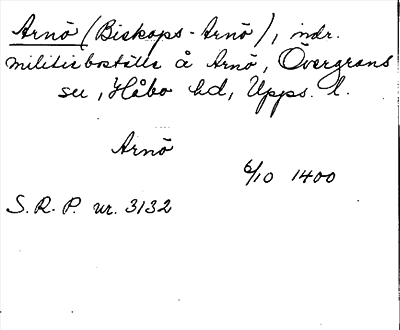 Arnö (Biskops-Arnö), indr.
militiebostställe å Arnö, Övergrans
sn, Håbo hd, Upps. l.
Arnö
6/10 1400
S.R.P. nr. 3132